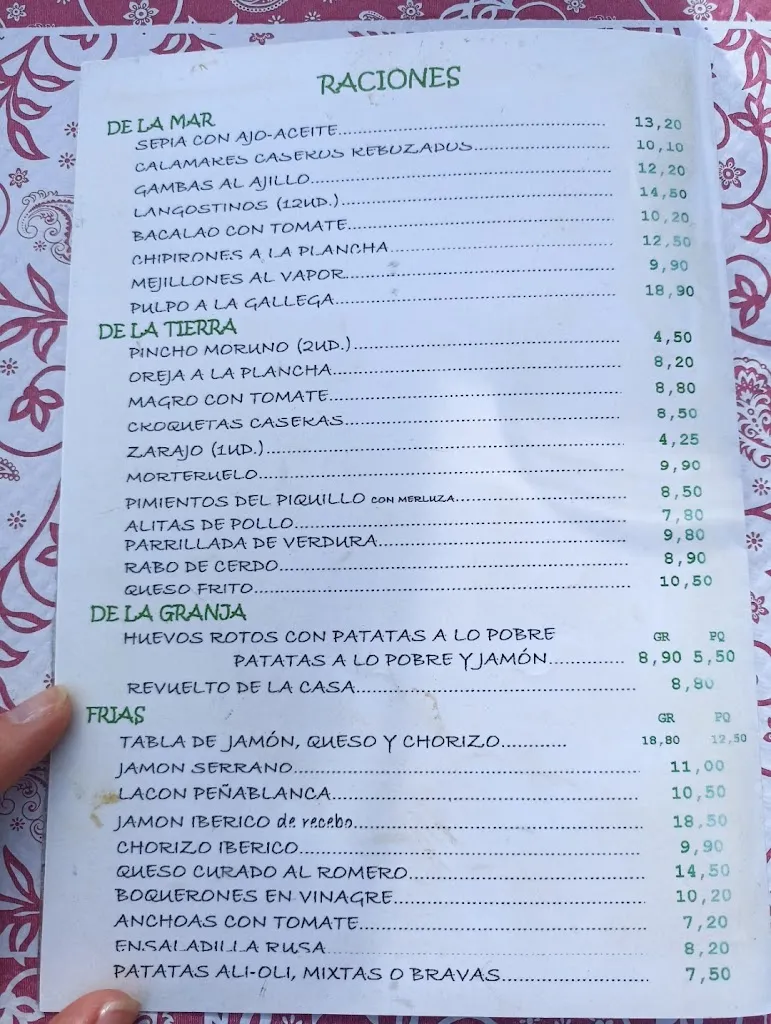 RACIONES
DE LA MAR
SEPIA CON AJO-ACEITE 13,20
CALAMARES CASEROS REBOZADOS 10,10
GAMBAS AL AJILLO 12,20
LANGOSTINOS (12UD.) 14,50
BACALAO CON TOMATE 10,20
CHIPIRONES A LA PLANCHA 12,50
MEJILLONES AL VAPOR 9,90
PULPO A LA GALLEGA 18,90
DE LA TIERRA
PINCHO MORUNO (2UD.) 4,50
OREJA A LA PLANCHA 8,20
MAGRO CON TOMATE 8,80
CROQUETAS CASERAS 8,50
ZARAJO (1UD.) 4,25
MORTERUELO 9,90
PIMIENTOS DEL PIQUILLO CON MERLUZA 8,50
ALITAS DE POLLO 7,80
PARRILLADA DE VERDURA 9,80
RABO DE CERDO 8,90
QUESO FRITO 10,50
DE LA GRANJA
HUEVOS ROTOS CON PATATAS A LO POBRE GR PQ
PATATAS A LO POBRE Y JAMÓN 8,90 5,50
REVUELTO DE LA CASA 8,80
FRIAS GR PQ
TABLA DE JAMÓN, QUESO Y CHORIZO 18,80 12,50
JAMON SERRANO 11,00
LACON PEÑABLANCA 10,50
JAMON IBERICO de recebo 18,50
CHORIZO IBERICO 9,90
QUESO CURADO AL ROMERO 14,50
BOQUERONES EN VINAGRE 10,20
ANCHOAS CON TOMATE 7,20
ENSALADILLA RUSA 8,20
PATATAS ALI-OLI, MIXTAS O BRAVAS 7,50